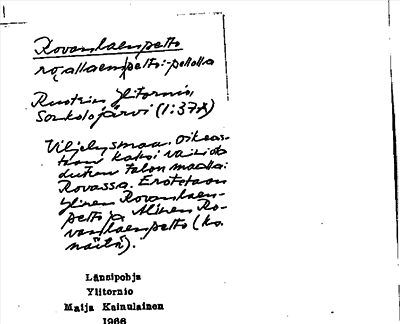 Rovanlaenpelto
rọvallaempelto: -pellolla
Ruotsin Ylitornio,
Soukolojärvi (1:37A)
Viljelysmaa. Oikeas-
taan kaksi vainiota
duttun talon maalla:
Rovassa. Erotetaan
Ylinen Rovanlaen-
pelto ja Alinen Ro-
vanlaenpelto (ks.
näitä).
Länsipohja
Ylitornio
Maija Kainulainen
1966